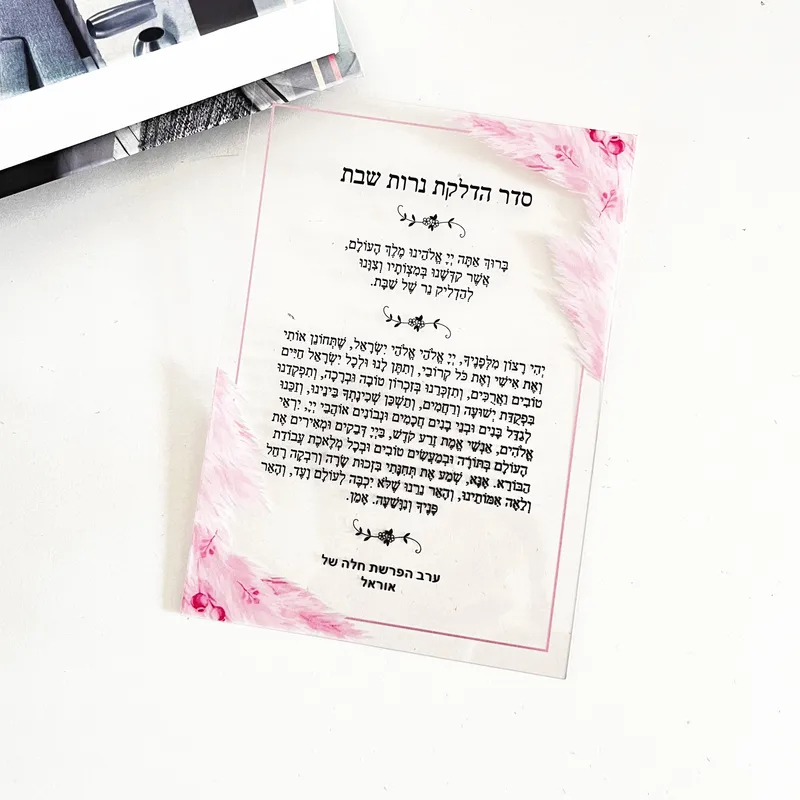 סדר הדלקת נרות שבת
בָּרוּךְ אַתָּה יְיָ אֱלֹהֵינוּ מֶלֶךְ הָעוֹלָם,
אֲשֶׁר קִדְּשָׁנוּ בְּמִצְוֹתָיו וְצִוָּנוּ
לְהַדְלִיק נֵר שֶׁל שַׁבָּת.
יְהִי רָצוֹן מִלְּפָנֶיךָ, יְיָ אֱלֹהַי אֱלֹהֵי יִשְׂרָאֵל, שֶׁתְּחוֹנֵן אוֹתִי
וְאֶת אִישִׁי וְאֶת כֹּל קְרוֹבַי, וְתִתֵּן לָנוּ וּלְכָל יִשְׂרָאֵל חַיִּים
טוֹבִים וַאֲרֻכִּים, וְתִזְכְּרֵנוּ בְּזִכְרוֹן טוֹבָה וּבְרָכָה, וְתִפְקְדֵנוּ
בִּפְקֻדַּת יְשׁוּעָה וְרַחֲמִים, וְתַשְׁכֵּן שְׁכִינָתְךָ בֵּינֵינוּ, וְזַכֵּנוּ
לְגַדֵּל בָּנִים וּבְנֵי בָנִים חֲכָמִים וּנְבוֹנִים אוֹהֲבֵי יְיָ, יִרְאֵי
אֱלֹהִים, אַנְשֵׁי אֱמֶת זֶרַע קֹדֶשׁ, בַּיְיָ דְּבֵקִים וּמְאִירִים אֶת
הָעוֹלָם בְּתוֹרָה וּבְמַעֲשִׂים טוֹבִים וּבְכָל מְלֶאכֶת עֲבוֹדַת
הַבּוֹרֵא. אָנָּא, שְׁמַע אֶת תְּחִנָּתִי בִּזְכוּת שָׂרָה וְרִבְקָה רָחֵל
וְלֵאָה אִמּוֹתֵינוּ, וְהָאֵר נֵרֵנוּ שֶׁלֹּא יִכְבֶּה לְעוֹלָם וָעֶד, וְהָאֵר
פָּנֶיךָ וְנִוָּשֵׁעָה. אָמֵן.
ערב הפרשת חלה של
אוראל